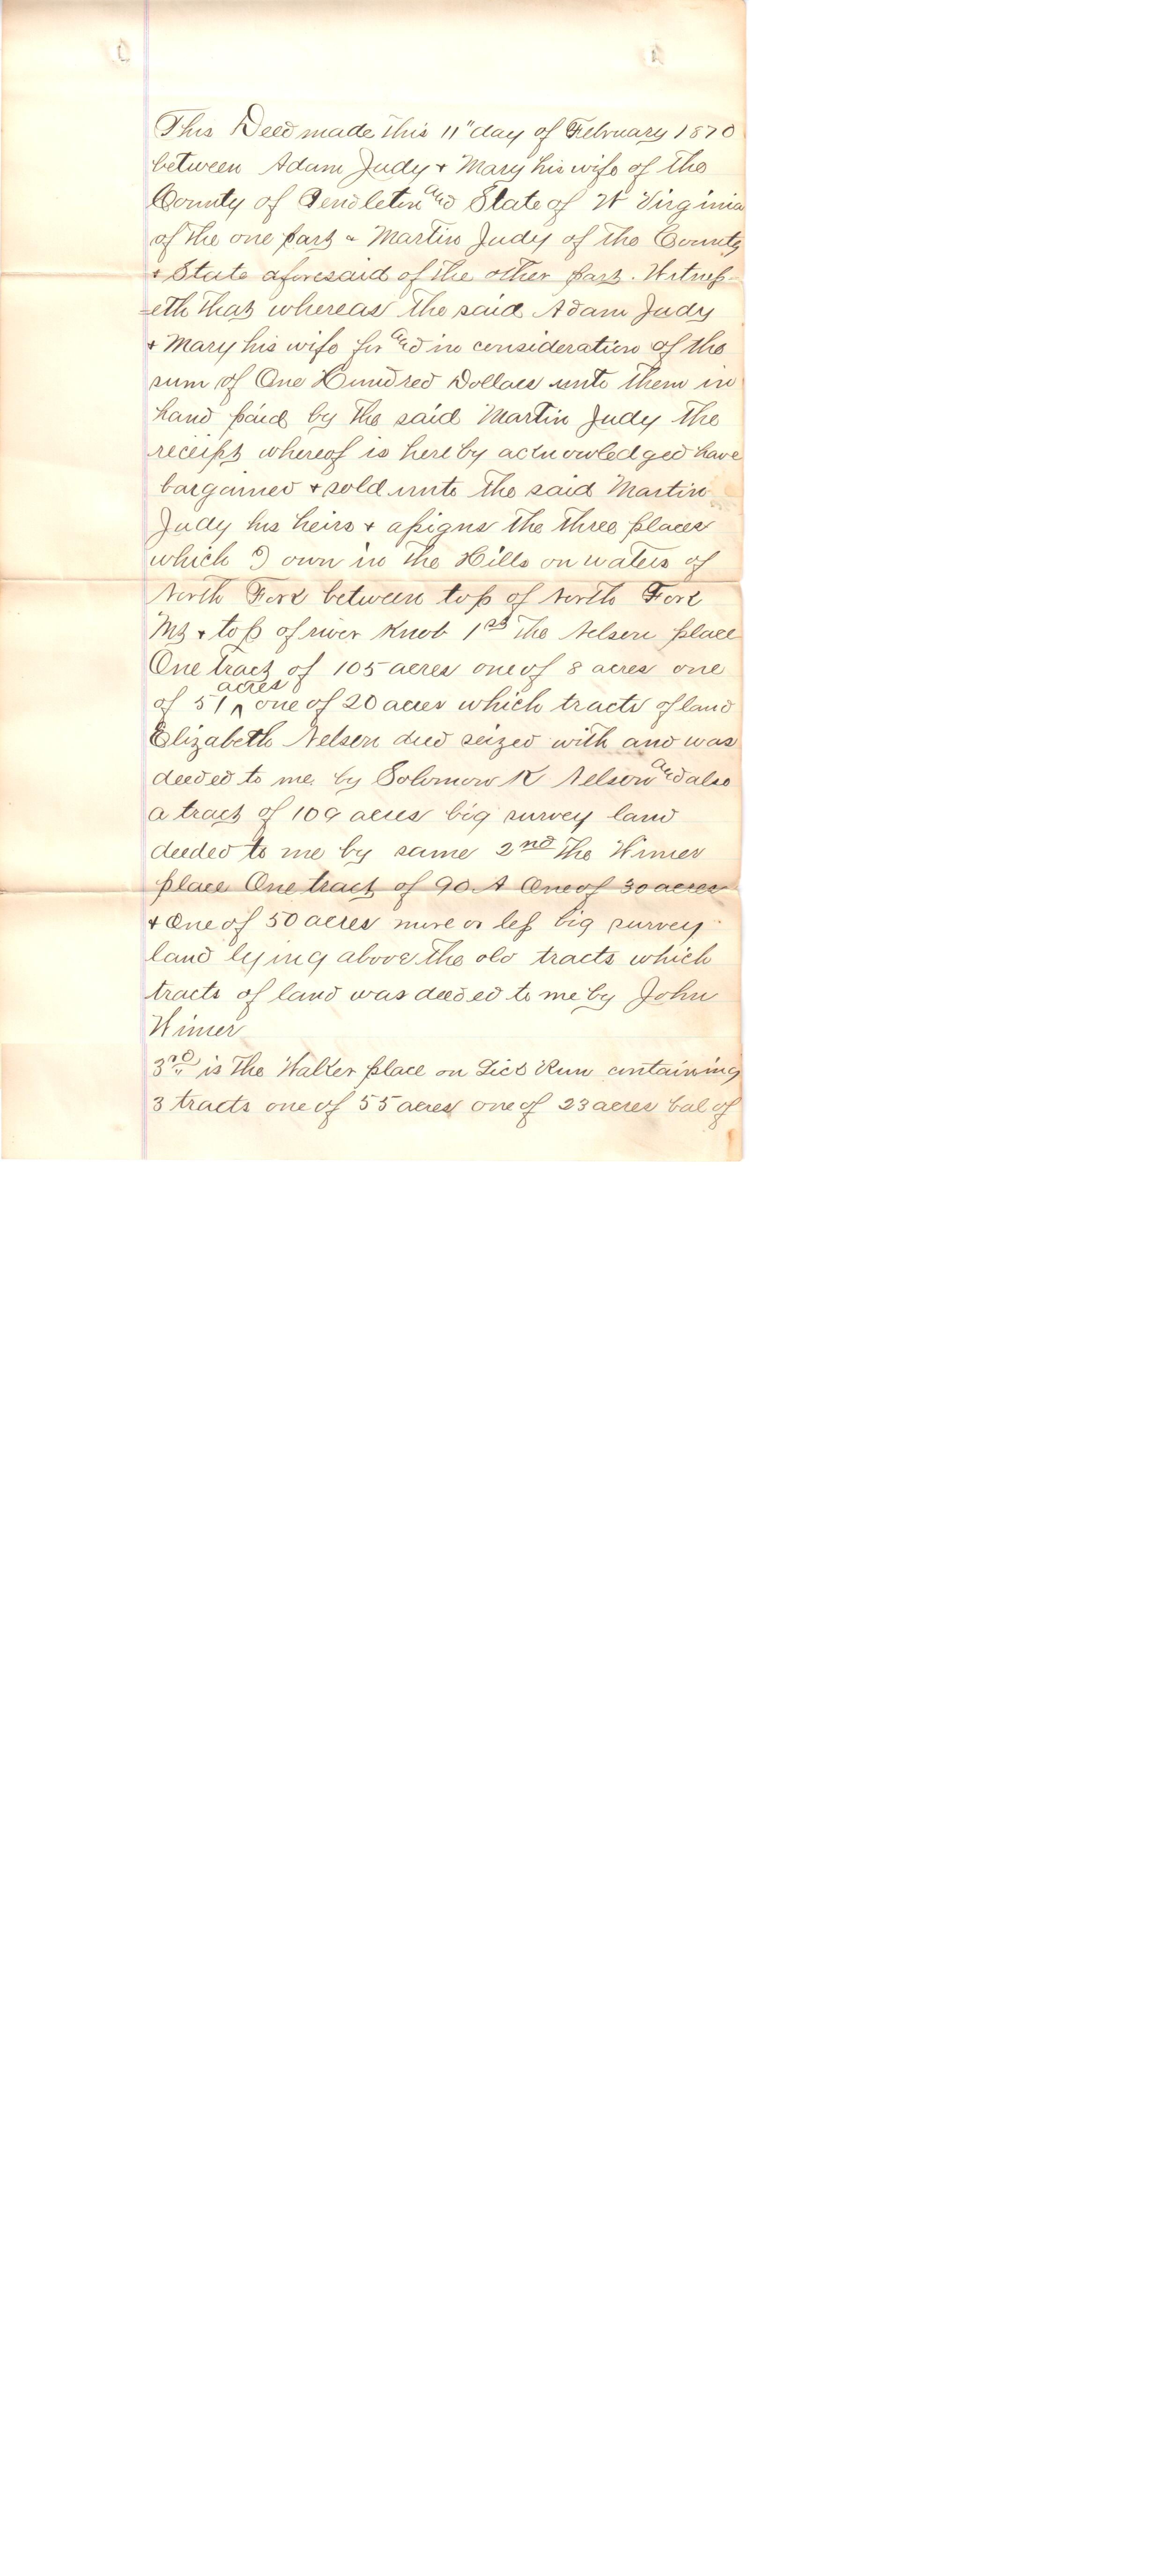 This Deed made this 11" day of February 1870
between Adam Judy & Mary his wife of the
County of Pendleton and State of W Virginia
of the one part & Martin Judy of the County
& State aforesaid of the other part. Witness-
=eth that whereas the said Adam Judy
& Mary his wife for and in consideration of the
sum of One Hundred Dollars unto them in
hand paid by the said Martin Judy the
receipt whereof is hereby acknowledged have
bargained & sold unto the said Martin
Judy his heirs & assigns the three places
which I own in the Hills on waters of
North Fork between top of North Fork
Mt & top of river Knob 1st The Nelson place
One tract of 105 acres one of 8 acres one
of 51 acres one of 20 acres which tracts of land
Elizabeth Nelson died seized with and was
deeded to me by Solomon K Nelson and also
a tract of 109 acres big survey land
deeded to me by same 2nd The Wimer
place One tract of 90 A One of 30 acres
& One of 50 acres more or less big survey
land lying above the old tracts which
tracts of land was deeded to me by John
Wimer
3rd is The Walker place on Lick Run containing
3 tracts one of 55 acres one of 23 acres bal of